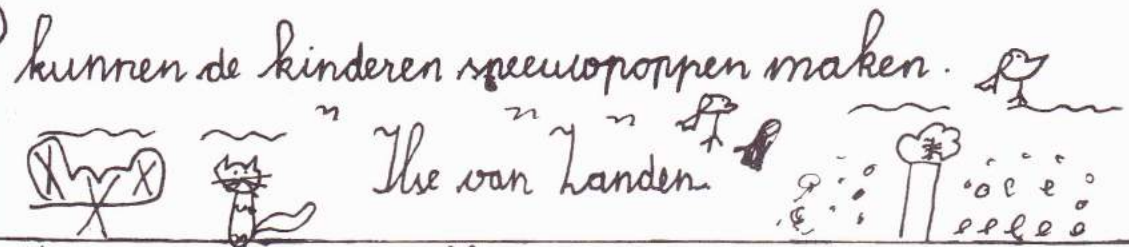 kunnen de kinderen sneeuwpoppen maken.
Ilse van Landen.